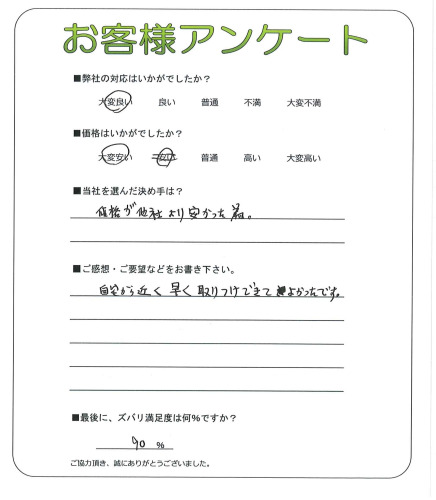 お客様アンケート
■弊社の対応はいかがでしたか？
大変良い 良い 普通 不満 大変不満
■価格はいかがでしたか？
大変安い 安い 普通 高い 大変高い
■当社を選んだ決め手は？
価格が他社より安かった為。
■ご感想・ご要望などをお書き下さい。
自宅から近く早く取りつけできてよかったです。
■最後に、ズバリ満足度は何％ですか？
90 ％
ご協力頂き、誠にありがとうございました。